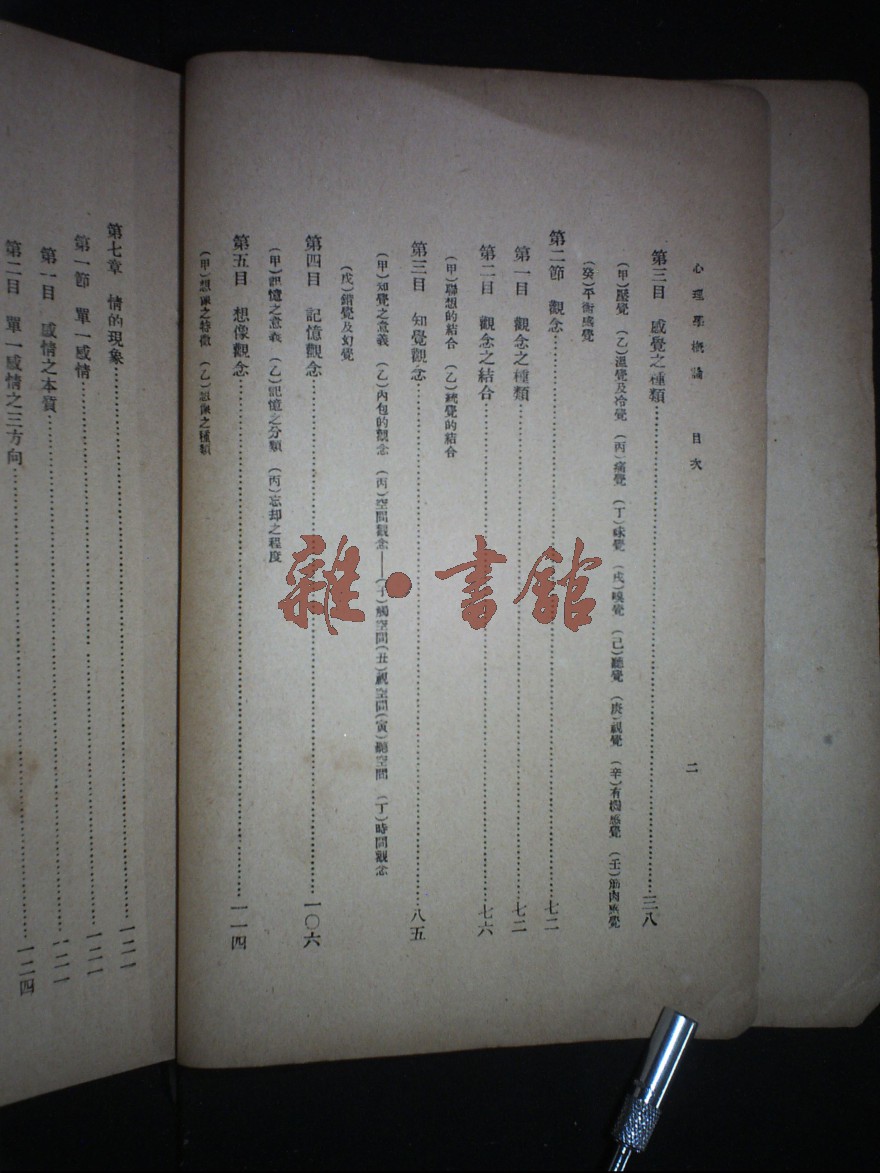 心理學概論 目次 二
第三目 感覺之種類……三八
(甲)壓覺 (乙)溫覺及冷覺 (丙)痛覺 (丁)味覺 (戊)嗅覺 (己)聽覺 (庚)視覺 (辛)有機感覺 (壬)筋肉感覺
(癸)平衡感覺
第二節 觀念……七二
第一目 觀念之種類……七二
第二目 觀念之結合……七六
(甲)聯想的結合 (乙)統覺的結合
第三目 知覺觀念……八五
(甲)知覺之意義 (乙)內包的觀念 (丙)空間觀念——(子)觸空間(丑)視空間(寅)聽空間 (丁)時間觀念
(戊)錯覺及幻覺
第四目 記憶觀念……一〇六
(甲)記憶之意義 (乙)記憶之分類 (丙)忘却之程度
第五目 想像觀念……一一四
(甲)想像之特徵 (乙)想像之種類
第七章 情的現象……一二一
第一節 單一感情……一二一
第一目 感情之本質……一二一
第二目 單一感情之三方向……一二四
雜·書館